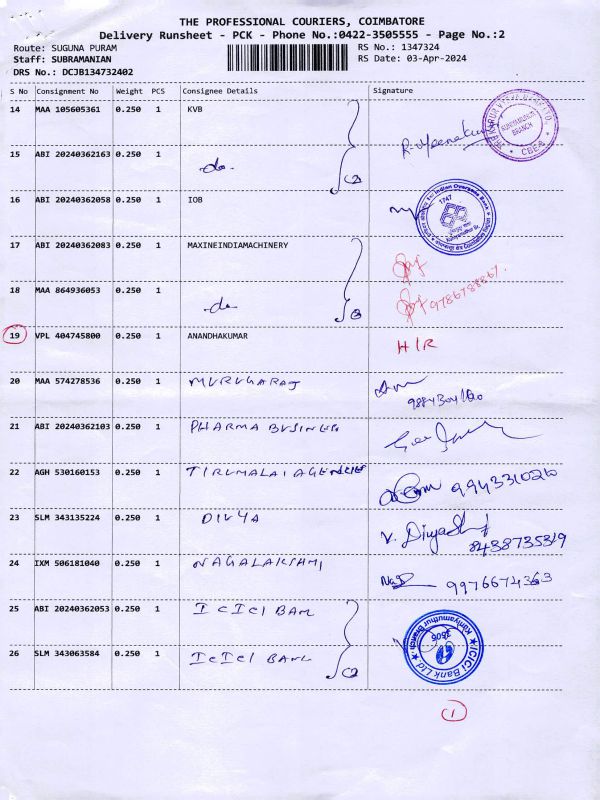 THE PROFESSIONAL COURIERS, COIMBATORE
Delivery Runsheet - PCK - Phone No.:0422-3505555 - Page No.:2
Route: SUGUNA PURAM RS No.: 1347324
Staff: SUBRAMANIAN RS Date: 03-Apr-2024
DRS No.: DCJB134732402
S No Consignment No Weight PCS Consignee Details Signature
14 MAA 105605361 0.250 1 KVB
15 ABI 20240362163 0.250 1 -do-
16 ABI 20240362058 0.250 1 IOB
17 ABI 20240362083 0.250 1 MAXINEINDIAMACHINERY
18 MAA 864936053 0.250 1 -do- 9786788867.
19 VPL 404745800 0.250 1 ANANDHAKUMAR H/R
20 MAA 574278536 0.250 1 MURUGARAJ
21 ABI 20240362103 0.250 1 PHARMA BUSINESS
22 AGH 530160153 0.250 1 TIRUMALAI AGENCIES 9943310220
23 SLM 343135224 0.250 1 DIVYA V. Divya 8438735319
24 IXM 506181040 0.250 1 NAGALAKSHMI 9976674363
25 ABI 20240362053 0.250 1 ICICI BANK
26 SLM 343063584 0.250 1 ICICI BANK
ICICI Bank Ltd
Kuniyamuthur Branch
1